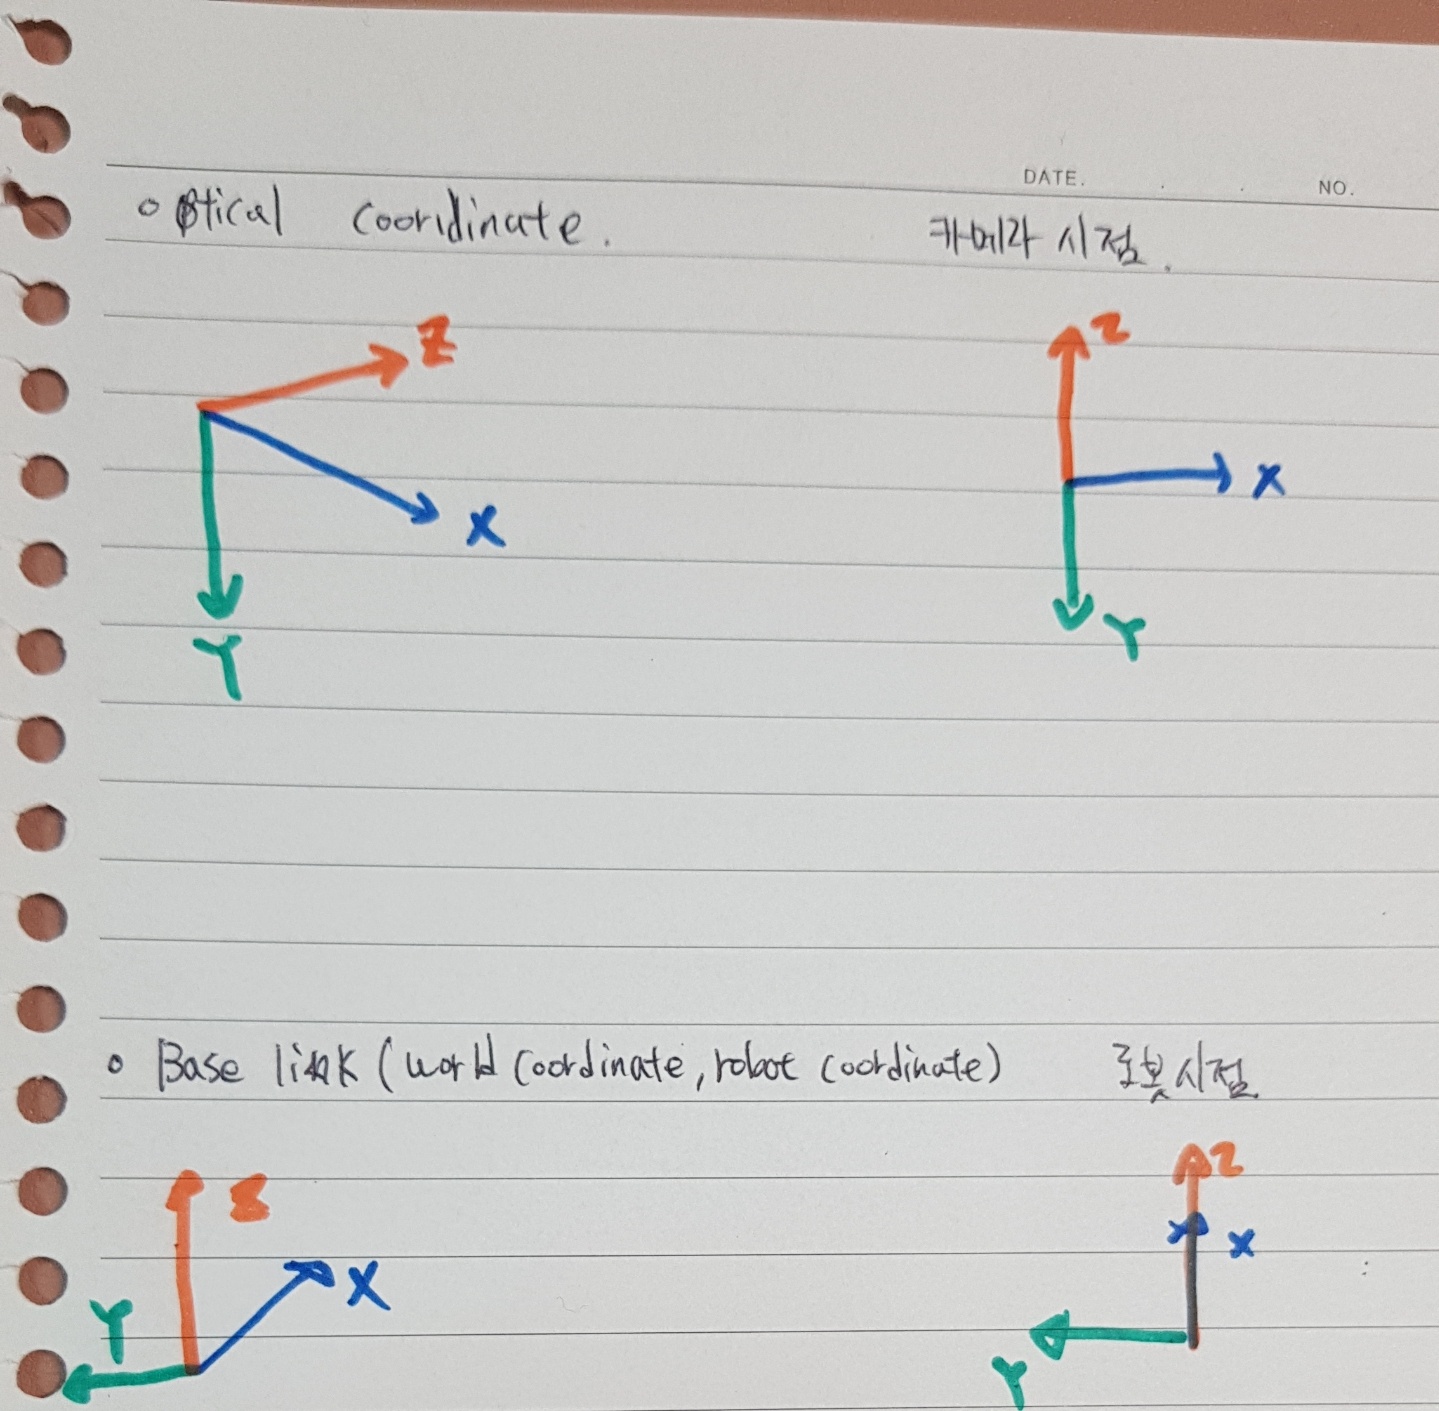 DATE. . . NO.
○ Optical coordinate. 카메라 시점.
Z Z
X X
Y Y
○ Base link (world coordinate, robot coordinate) 로봇 시점.
Z Z
X X
Y Y